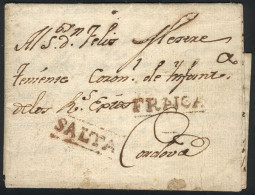 Al S.r D.n Felis
Teniente Coron.l de Infant.a
de los R.s Exto.s FRANCA
SALTA
Cordova